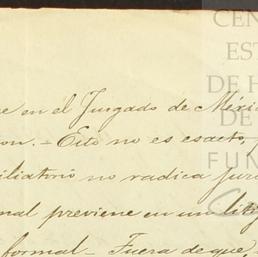 CEN
ES
DE H
DE
FUN
e en el Juzgado de Méxi
on. - Esto no es esacto,
iliatorio no radica juri
nal previene en un litig
formal - Fuera de que,